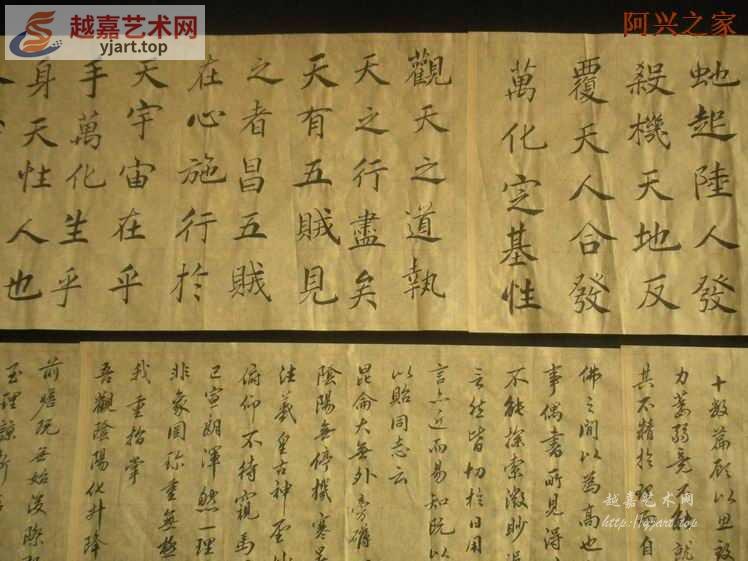 越嘉艺术网
yjart.top
阿兴之家
虵起陸人發
殺機天地反
覆天人合發
萬化定基性
觀天之道執
天之行盡矣
天有五賊見
之者昌五賊
在心施行於
天宇宙在乎
手萬化生乎
身天性人也
十數篇顧以思致
力萎弱竟不能就
其不精於理而自
佛之間以為高也
事偶書所見得
不能探索微眇
言然皆切於日用
言亦近而易知既以
以貽同志云
昆侖大無外旁礴
陰陽無停機寒暑
羲皇古神聖妙
俯仰不待窺馬
已宣朗渾然一理
非象罔珍重無極
我重指掌
吾觀陰陽化升降
前瞻既無始後際
至理諒斯
越嘉艺术网
http://yjart.top